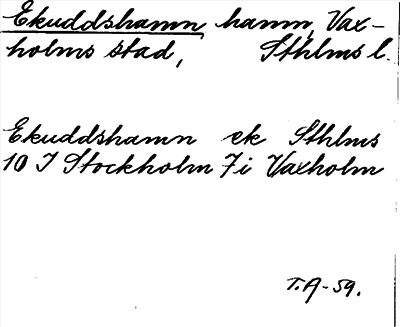 Ekuddshamn, hamn, Vax-
holms stad, Sthlms l.
Ekuddshamn ek Sthlms
10 I Stockholm 7i Vaxholm
T.A-59.